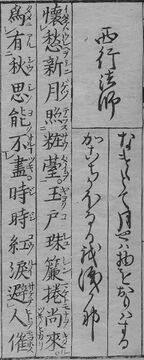 西行法師
なけゝとて月やは物をおもはする
かこちかほなる我涙かな
懷愁新月照粧臺。玉戸珠簾捲尚來
為有秋思能不盡時時紅淚避人催